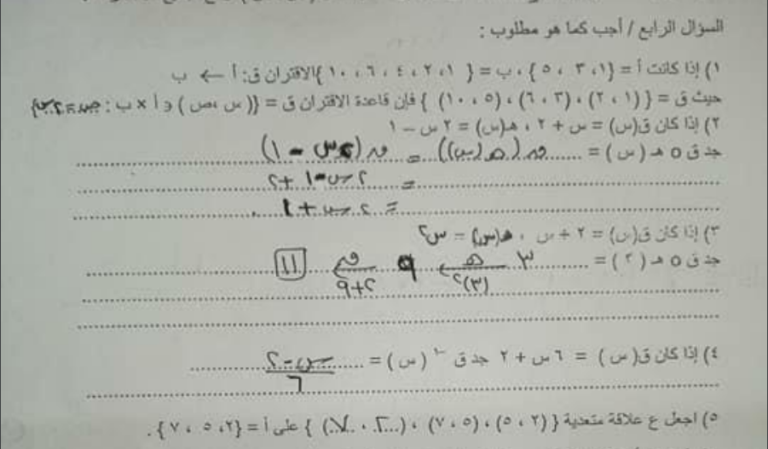 السؤال الرابع / أجب كما هو مطلوب :
١) إذا كانت أ = {١، ٣، ٥} ، ب = { ١، ٢، ٤، ٦، ١٠ }الاقتران ق: أ ← ب
حيث ق = { (١، ٢)، (٣، ٦)، (٥، ١٠) } فإن قاعدة الاقتران ق = {(س ،ص) ∈ أ × ب : ص = ٢س}
٢) إذا كان ق(س) = س + ٢ ، هـ(س) = ٢ س – ١
جد ق ٥ هـ ( س ) = ...... ق (هـ (س)) = ق (٢س - ١)
= ٢س - ١ + ٢
= ٢س + ١
٣) إذا كان ق(س) = ٢ + س ، هـ(س) = س٢
جد ق ٥ هـ (٣) = ...... ٣ هـ ← (٣)٢ ٩ ق ٢+٩ 11
٤) إذا كان ق(س) = ٦ س + ٢ جد ق -١ (س) = ...... س - ٢
٦
٥) اجعل ع علاقة متعدية { (٢، ٥)، (٥، ٧)، (٢ ، ٧) } على أ = {٢، ٥، ٧} .